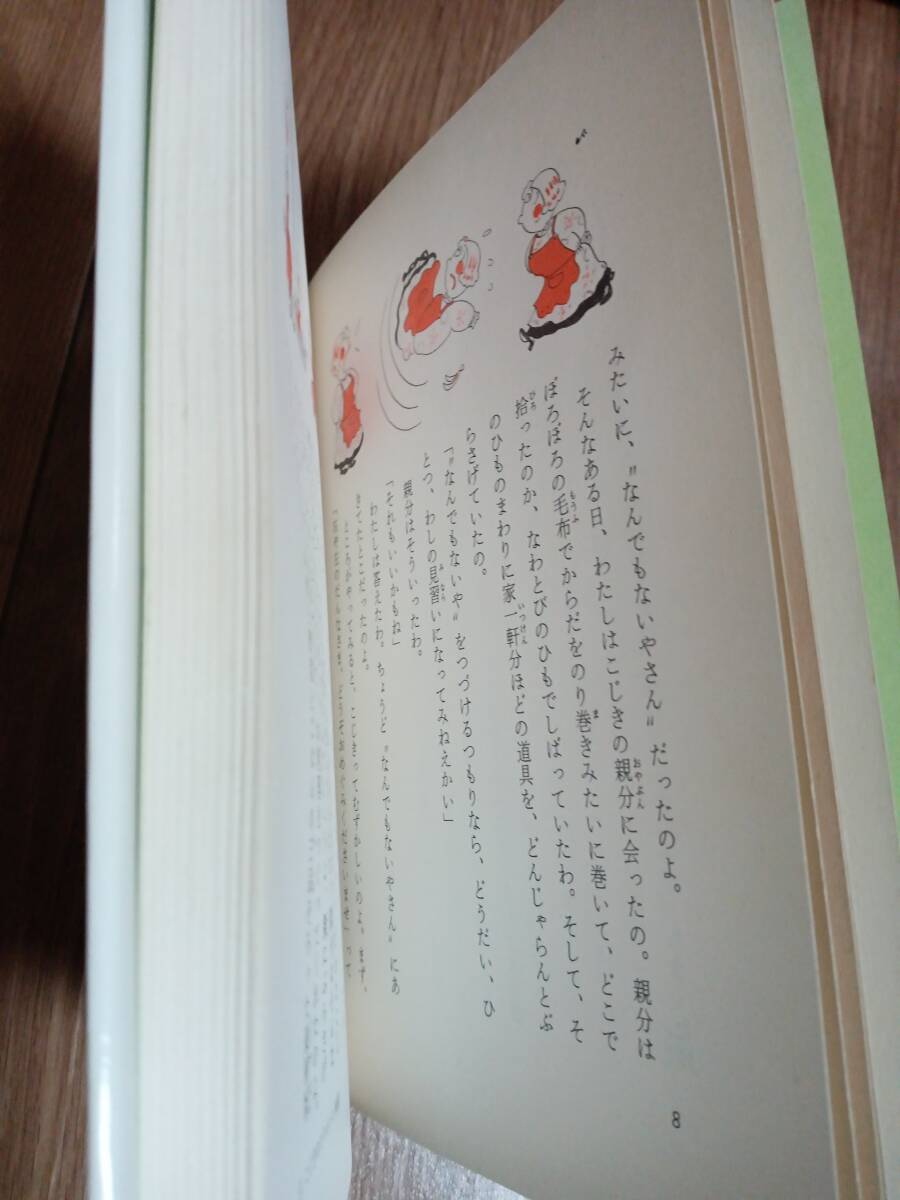 みたいに、〝なんでもないやさん〟だったのよ。
そんなある日、わたしはこじきの親分に会ったの。親分は
ぼろぼろの毛布でからだをのり巻きみたいに巻いて、どこで
拾ったのか、なわとびのひもでしばっていたわ。そして、そ
のひものまわりに家一軒分ほどの道具を、どんじゃらんとぶ
らさげていたの。
「〝なんでもないや〟をつづけるつもりなら、どうだい、ひ
とつ、わしの見習いになってみねえかい」
親分はそういったわ。
「それもいいかもね」
わたしは答えたわ。ちょうど〝なんでもないやさん〟にあ
きてたとこだったのよ。
ところがやってみると、こじきってむずかしいのよ。まず、
だんなさま、どうぞおめぐみくださいませ」って
8